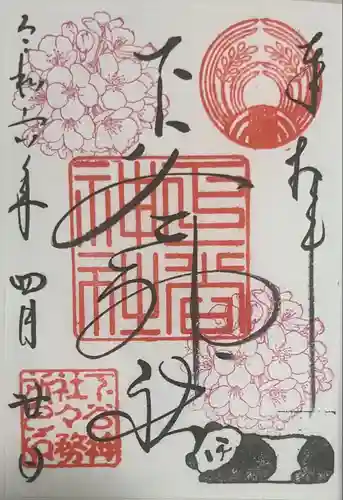 奉拝
下谷神社
令和六年四月廿日
下谷
神社
下谷神
社々務